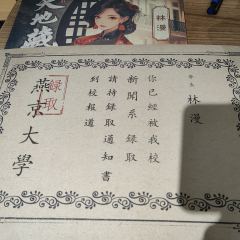 地藏
林漫
學生 林漫
你已經被我校
新聞系 錄取
請持錄取通知書
到校報道
燕京大學
錄取